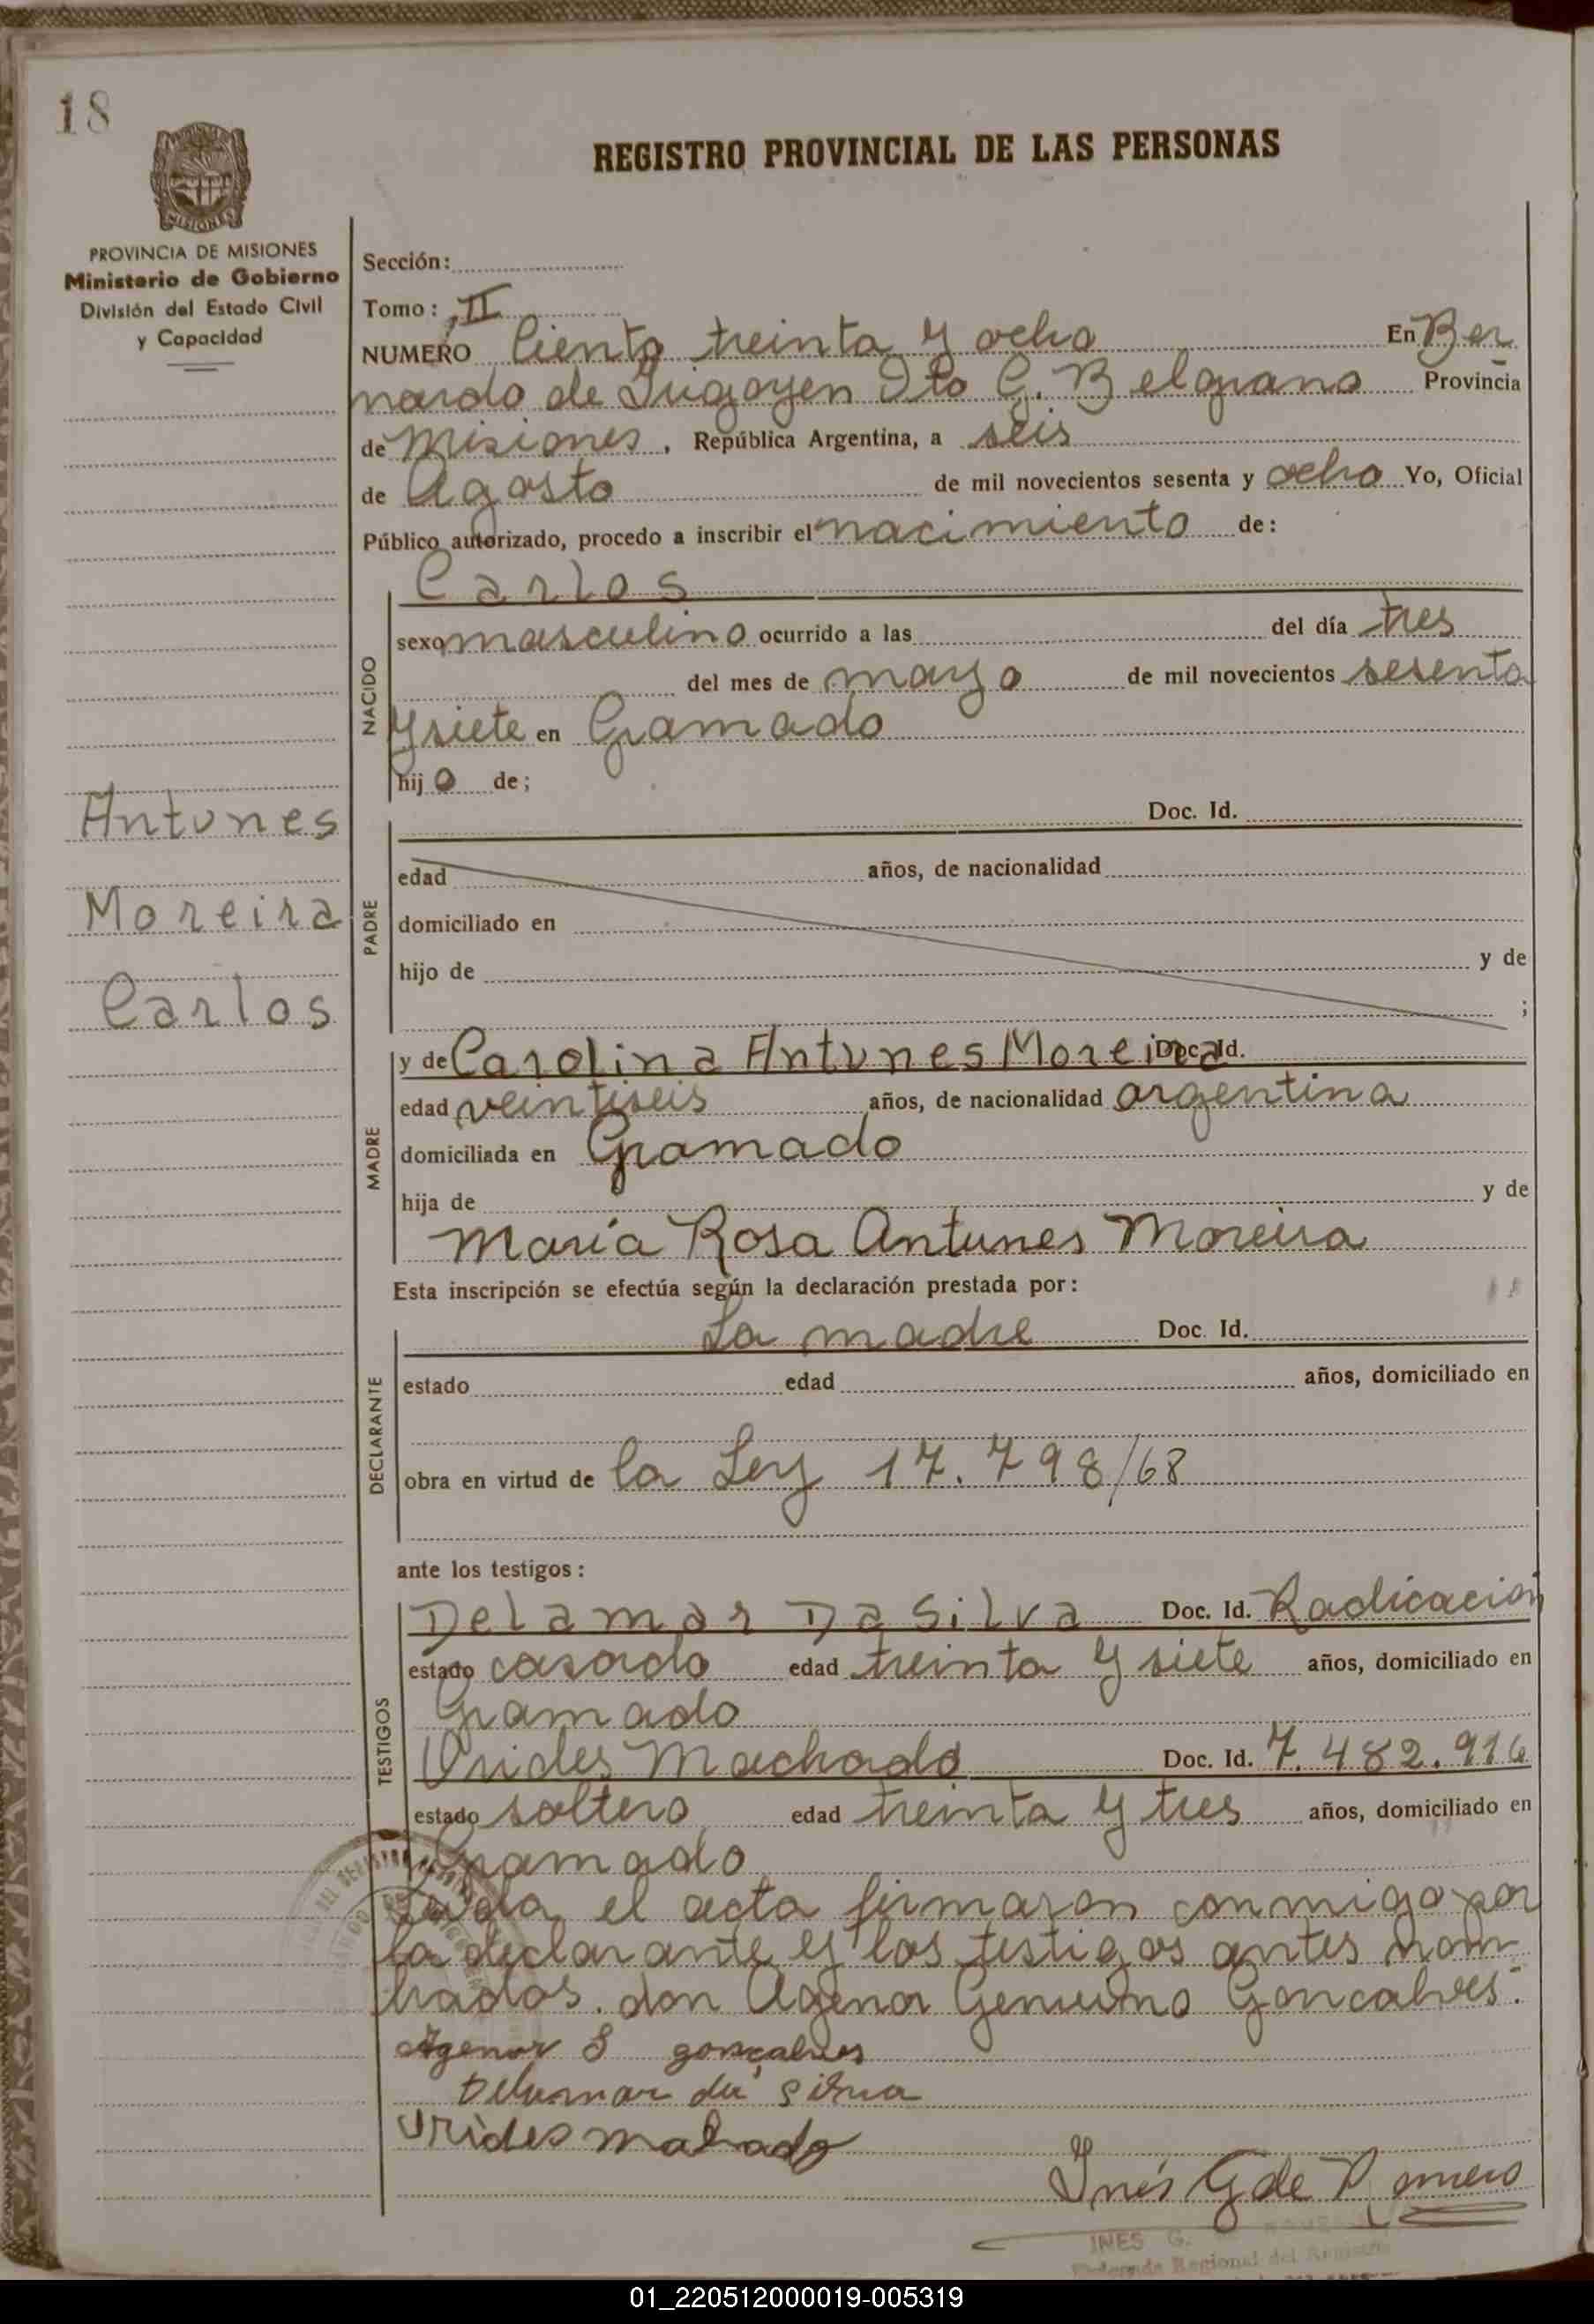 18
REGISTRO PROVINCIAL DE LAS PERSONAS
MISIONES
PROVINCIA DE MISIONES
Ministerio de Gobierno
División del Estado Civil
y Capacidad
Sección:
Tomo: II
NUMERO Ciento treinta y ocho En Ber
nardo de Irigoyen Dto G. Belgrano Provincia
de Misiones, República Argentina, a seis
de Agosto de mil novecientos sesenta y ocho Yo, Oficial
Público autorizado, procedo a inscribir el nacimiento de:
Carlos
NACIDO
sexo masculino ocurrido a las del día tres
del mes de mayo de mil novecientos sesenta
y siete en Gramado
hijo de;
Antunes
Moreira
Carlos
PADRE
Doc. Id.
edad años, de nacionalidad
domiciliado en
hijo de y de
;
MADRE
y de Carolina Antunes Moreira Doc. Id.
edad veintiseis años, de nacionalidad argentina
domiciliada en Gramado
hija de y de
María Rosa Antunes Moreira
Esta inscripción se efectúa según la declaración prestada por:
DECLARANTE
La madre Doc. Id.
estado edad años, domiciliado en
obra en virtud de la Ley 17.798/68
ante los testigos:
TESTIGOS
Delamar Da Silva Doc. Id. Radicación
estado casado edad treinta y siete años, domiciliado en
Gramado
Urides Machado Doc. Id. 7.482.916
estado soltero edad treinta y tres años, domiciliado en
Gramado
Leida el acta firmaron conmigo por
la declarante y los testigos antes nom
brados. don Agenor Gonçalves.
Agenor S gonçalves
Delamar da silva
Urides machado
Inés G de Romero
INES G.
Regional del
01_220512000019-005319